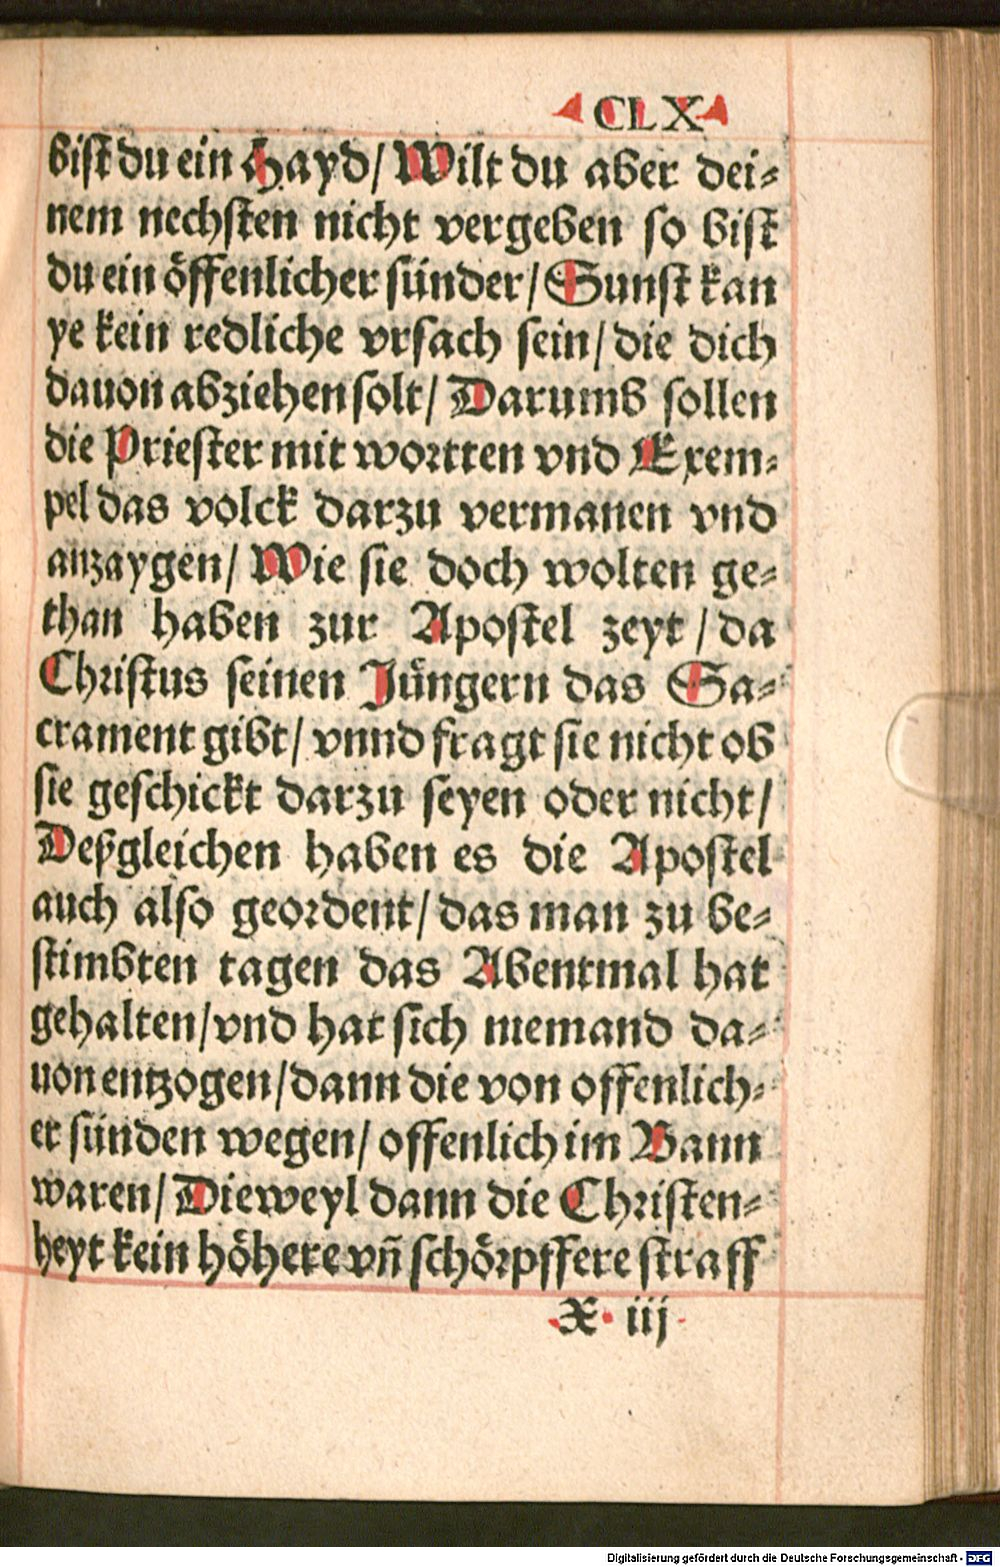 CLX
bist du ein Hayd/ Wilt du aber dei⸗
nem nechsten nicht vergeben so bist
du ein öffenlicher sünder/ Sunst kan
ye kein redliche vrsach sein/ die dich
dauon abziehen solt/ Darumb sollen
die Priester mit wortten vnd Exem⸗
pel das volck darzu vermanen vnd
anzaygen/ Wie sie doch wolten ge⸗
than haben zur Apostel zeyt/ da
Christus seinen Jüngern das Sa⸗
crament gibt/ vnnd fragt sie nicht ob
sie geschickt darzu seyen oder nicht/
Deßgleichen haben es die Apostel
auch also geordent/ das man zu be⸗
stimbten tagen das Abentmal hat
gehalten/ vnd hat sich niemand da⸗
uon entzogen/ dann die von offenlich⸗
er sünden wegen/ offenlich im Bann
waren/ Dieweyl dann die Christen⸗
heyt kein höhere vñ schörpffere straff
X iij
Digitalisierung gefördert durch die Deutsche Forschungsgemeinschaft - DFG